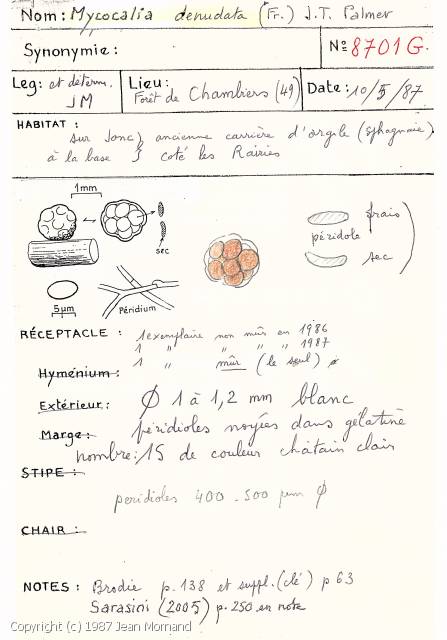 Nom: Mycocalia denudata (Fr.) J.T. Palmer
Synonymie:
No 8701 G.
Leg: et déterm. JM
Lieu: Forêt de Chambiers (49)
Date: 10/5/87
HABITAT :
sur Jonc ) ancienne carrière d'argile (sphagnaie)
à la base } coté les Rairies
1mm
sec
5µm
Péridium
frais
péridole
sec
RÉCEPTACLE : 1 exemplaire non mûr en 1986
1 " " " " 1987
1 " mûr (le seul)
Hyménium:
Extérieur: Ø 1 à 1,2 mm blanc
Marge: péridioles noyées dans gélatine
nombre: 15 de couleur châtain clair
STIPE :
peridioles 400 - 500 µm Ø
CHAIR :
NOTES : Brodie p.138 et suppl. (clé) p 63
Sarasini (2005) p. 250 en note
Copyright (c) 1987 Jean Mornand